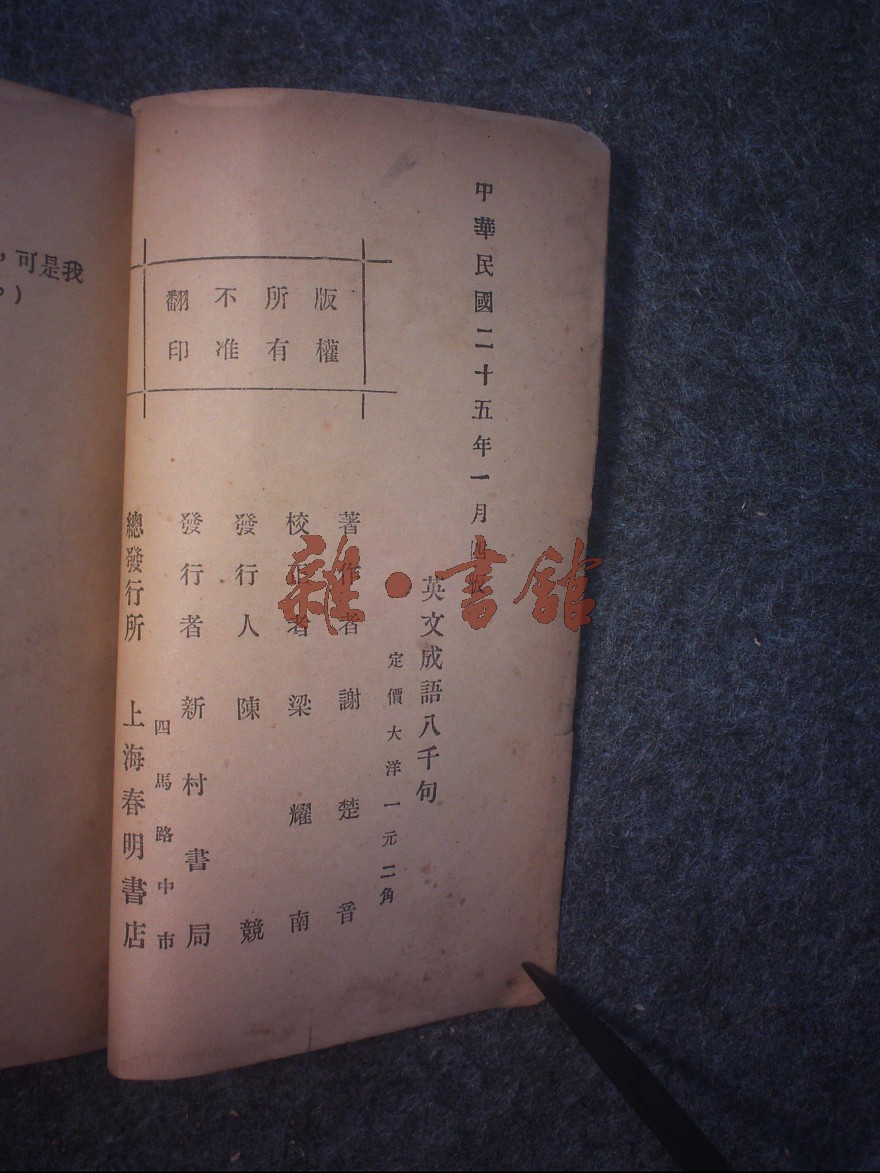 中華民國二十五年一月四版
英文成語八千句
定價大洋一元二角
著作者 謝楚音
校正者 梁耀南
發行人 陳競
發行者 新村書局
四馬路中市
總發行所 上海春明書店
版權
所有
不准
翻印
，可是我
。）
雜·書館